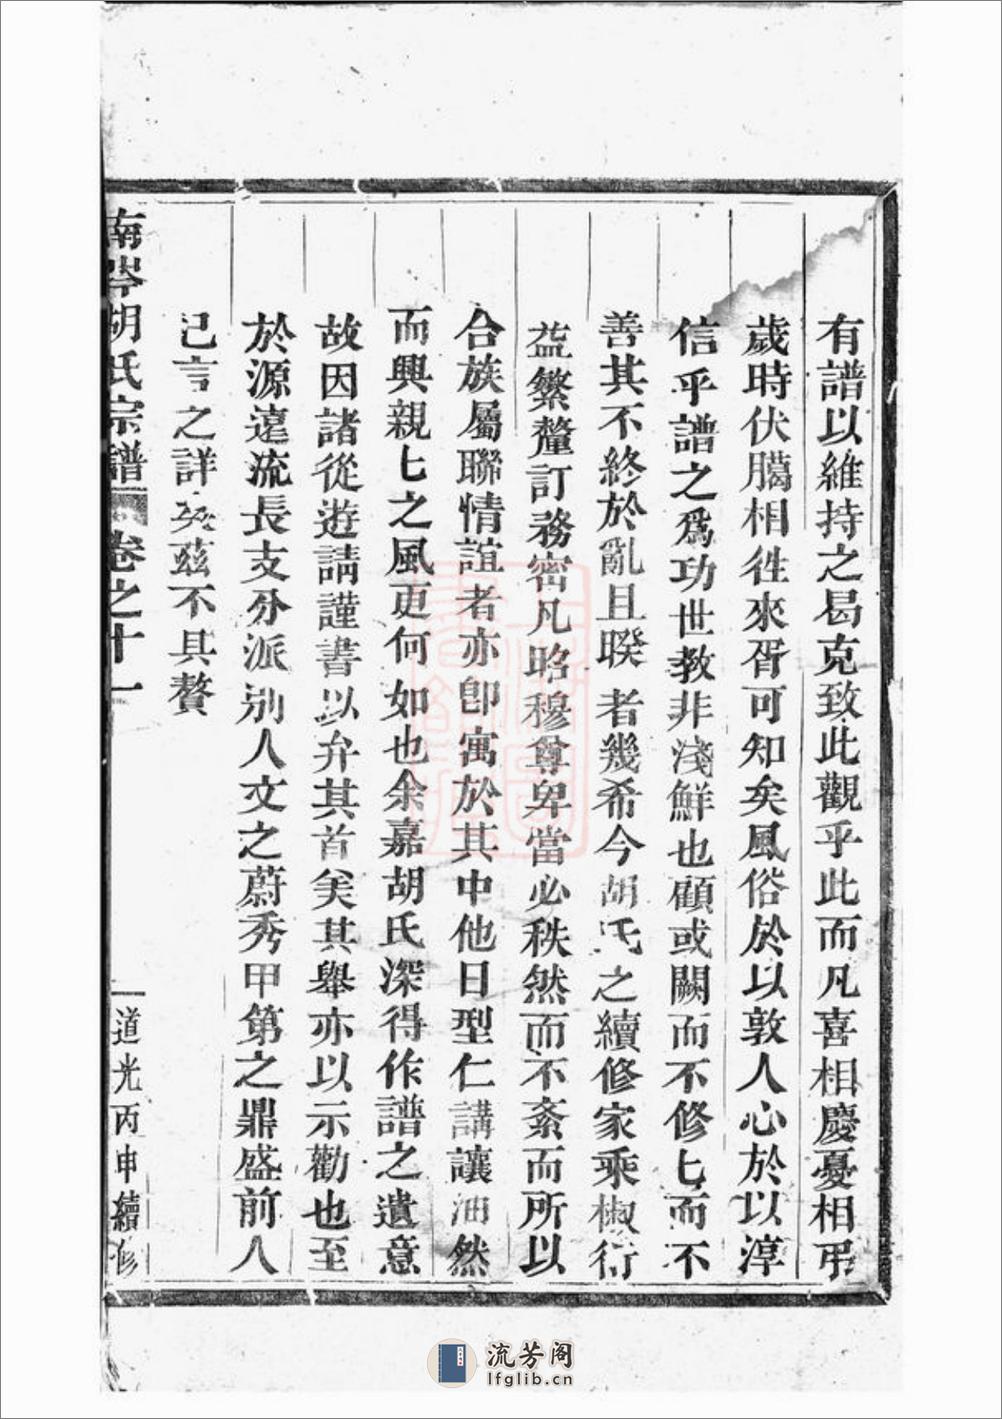 有譜以維持之曷克致此觀乎此而凡喜相慶憂相弔
歲時伏臈相徃來胥可知矣風俗於以敦人心於以淳
信乎譜之爲功世教非淺鮮也顧或闕而不修七而不
善其不終於亂且睽者幾希今胡氏之續修家乘椒衍
益繁釐訂務密凡昭穆尊卑當必秩然而不紊而所以
合族屬聯情誼者亦卽寓於其中他日型仁講讓油然
而興親七之風更何如也余嘉胡氏深得作譜之遺意
故因諸從遊請謹書以弁其首矣其舉亦以示勸也至
於源遠流長支分派別人文之蔚秀甲第之鼎盛前人
已言之詳矣茲不具贅
南岑胡氏宗譜 卷之十一 道光丙申續修
流芳阁
lfglib.cn